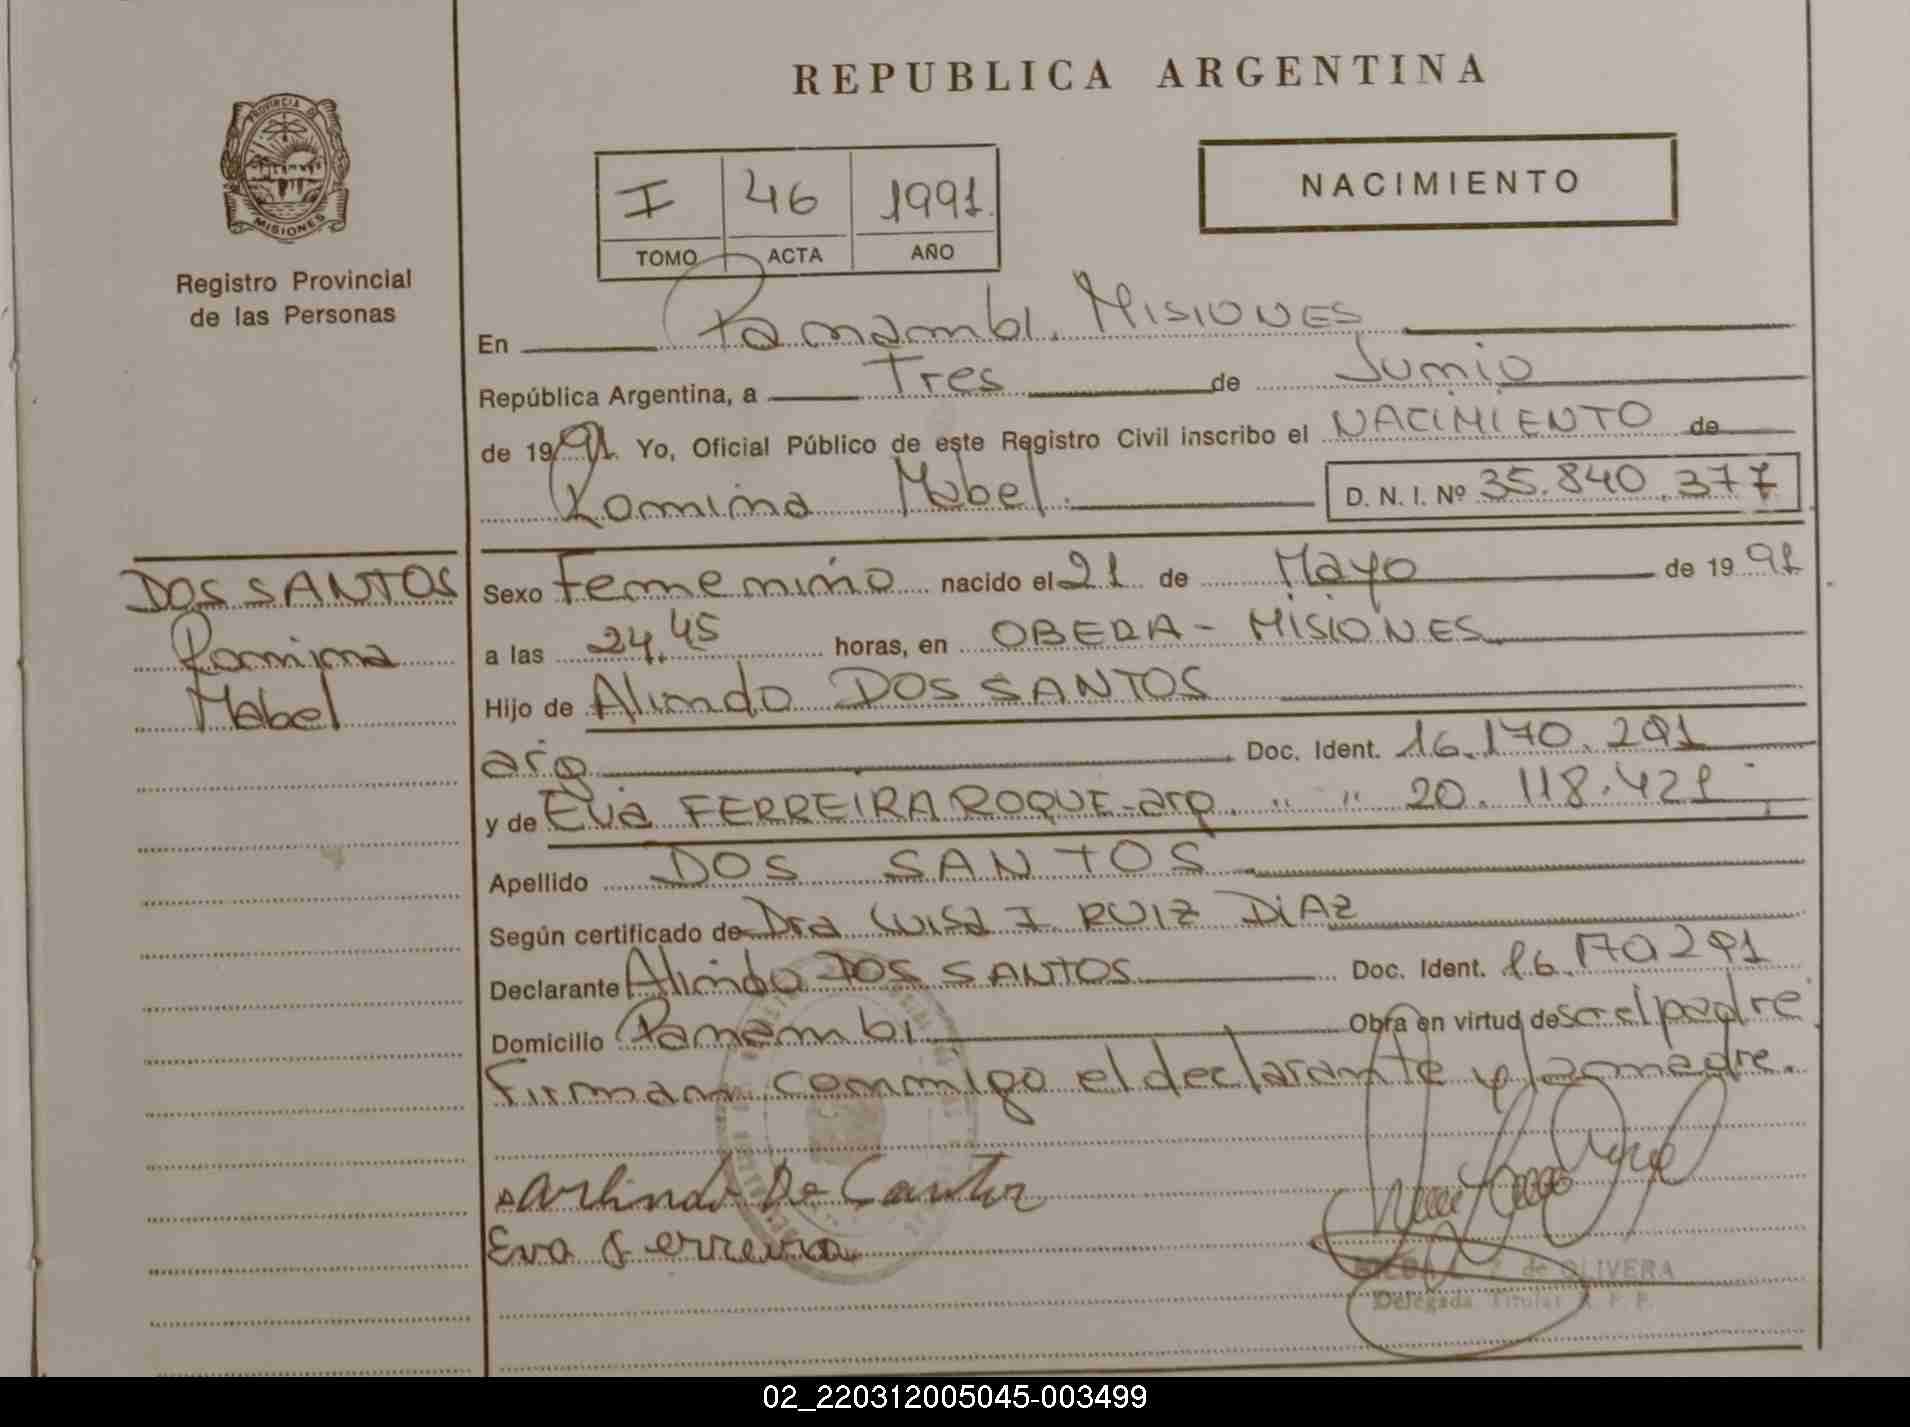 REPUBLICA ARGENTINA
PROVINCIA DE
MISIONES
Registro Provincial
de las Personas
I 46 1991
TOMO ACTA AÑO
NACIMIENTO
En Panambi. MISIONES
República Argentina, a Tres de Junio
de 1991. Yo, Oficial Público de este Registro Civil inscribo el NACIMIENTO de
Romina Mabel. D. N. I. Nº 35.840.377
DOS SANTOS
Romina
Mabel
Sexo Femenino nacido el 21 de Mayo de 1991
a las 24.45 horas, en OBERA - MISIONES
Hijo de Alindo DOS SANTOS
arg Doc. Ident. 16.170.291
y de Eva FERREIRA ROQUE - arg. " " 20.118.421
Apellido DOS SANTOS
Según certificado de Dra LUISA I RUIZ DIAZ
Declarante Alindo DOS SANTOS Doc. Ident. 16.170291
Domicilio Panambi Obra en virtud de ser el padre
Firman conmigo el declarante y la madre.
Arlindo Do Santos
Eva Ferreira
de OLIVERA
Delegada Titular R. P. P.
02_220312005045-003499